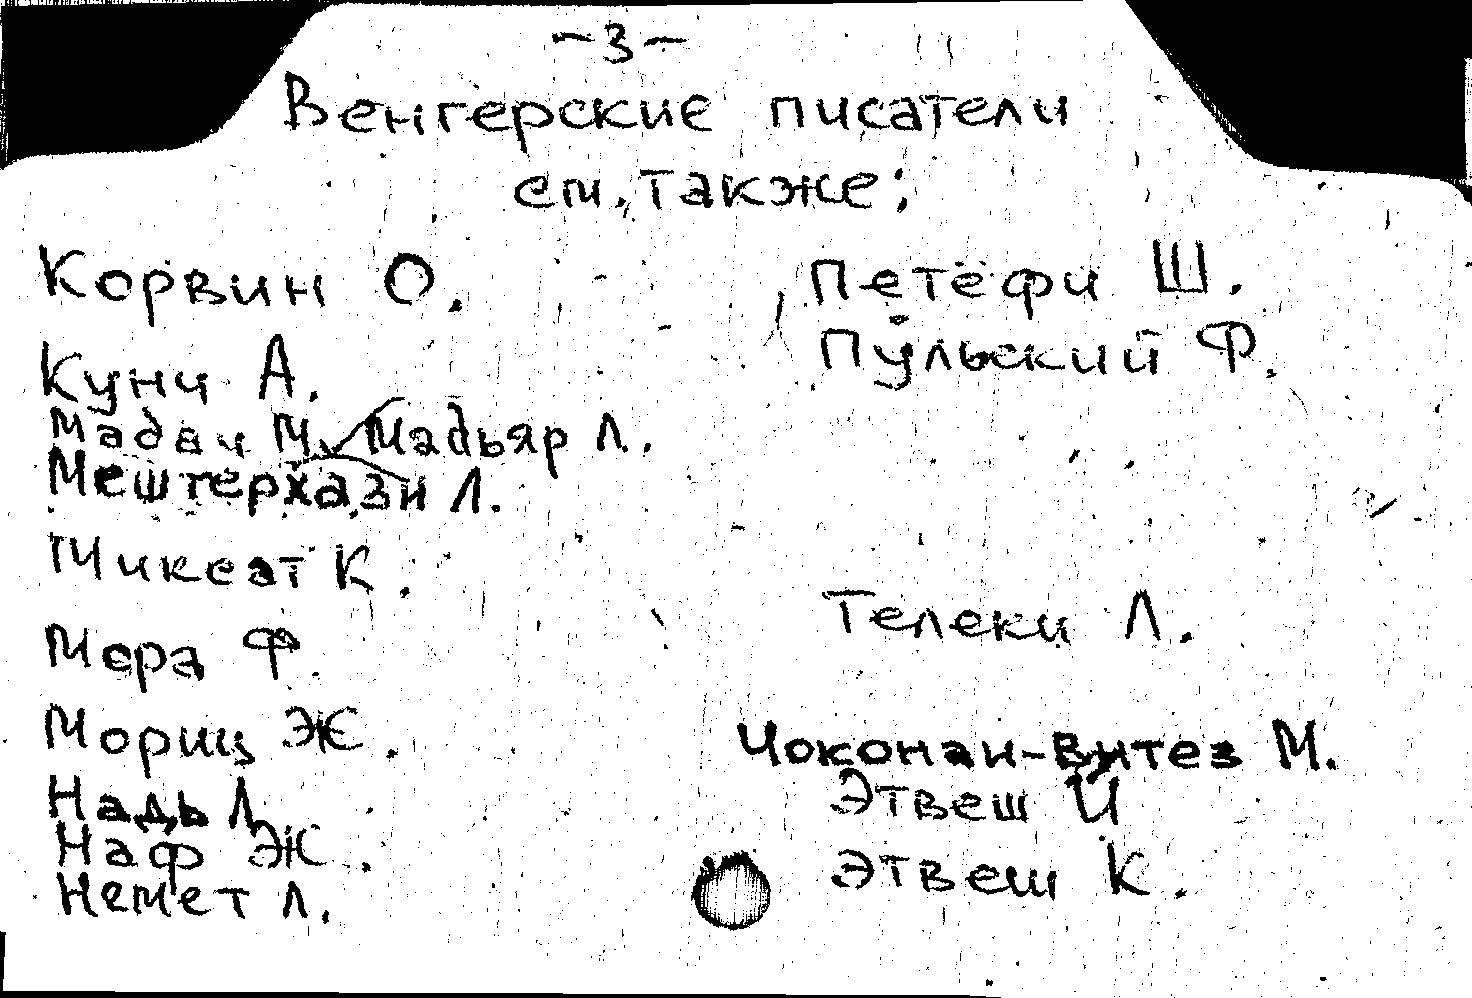 -3-
Венгерские писатели
см. также:
Корвин О.
Кунч А.
Мадач М. Мадьяр Л.
Мештерхази Л.
Миксат К.
Мора Ф.
Мориц Ж.
Надь Л.
Наф Ж.
Немет Л.
Петёфи Ш.
Пульский Ф.
Телеки Л.
Чоконаи-Витез М.
Этвеш Й
Этвеш К.